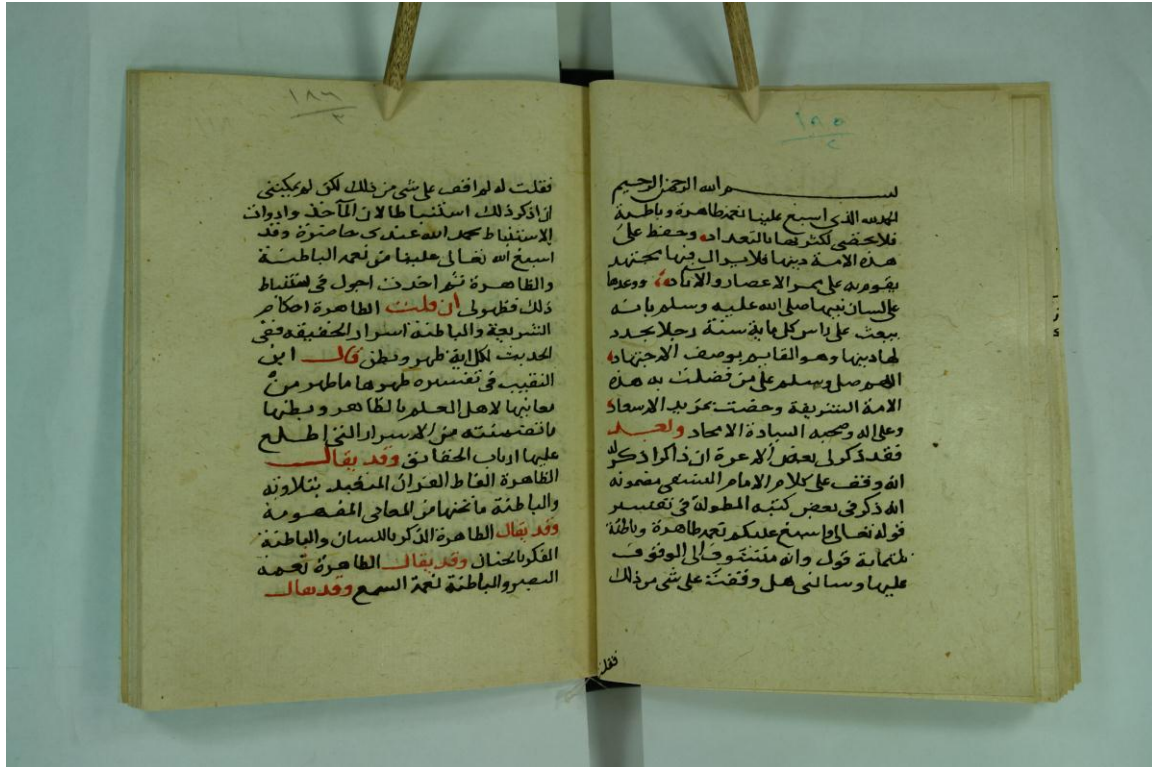 ١٨٥
٢
بسم الله الرحمن الرحيم
الحمد لله الذي اسبغ علينا نعمه ظاهرة وباطنة
فلا تحصى لكثرتها بالتعداد، وحفظ على
هذه الامة دينها فلا يزال فيها مجتهد
يقوم به على ممر الاعصار والآباد، ووعدها
على لسان نبيها صلى الله عليه وسلم بانه
يبعث على راس كل ماية سنة رجلا يجدد
لها دينها وهو القايم بوصف الاجتهاد،
اللهم صل وسلم على من فضلت به هذه
الامة الشريفة وخصت بمزيد الاسعاد
وعلى اله وصحبه السادة الامجاد وبعد
فقد ذكر لي بعض الاعزة ان ذاكرا ذكر له
انه وقف على كلام الامام مضمونه
انه ذكر في بعض كتبه المطولة في تفسير
قوله تعالى واسبغ عليكم نعمه ظاهرة وباطنة
ثلثماية قول وانه متشوف الى الوقوف
عليها وسالني هل وقفت على شي من ذلك
فقلت
١٨٦
٢
فقلت له لم اقف على شي من ذلك لكن لم يمكنني
ان اذكر ذلك استنباطا لان المآخذ وادوات
الاستنباط بحمد الله عندي حاضرة وقد
اسبغ الله تعالى علينا من نعمه الباطنة
والظاهرة ثم اخذت اجول في استنباط
ذلك فظهر لي ان قلت الظاهرة احكام
الشريعة والباطنة اسرار الحقيقه ففي
الحديث لكل اية ظهر وبطن قال ابن
النقيب في تفسيره ظهرها ما ظهر من
معانيها لاهل العلم بالظاهر وبطنها
ما تضمنته من الاسرار التي اطلع
عليها ارباب الحقائق وقد يقال
الظاهرة الفاظ القران المتعبد بتلاوته
والباطنة ما تحتها من المعاني المفهومة
وقد يقال الظاهرة الذكر باللسان والباطنة
الفكر بالجنان وقد يقال الظاهرة نعمه
البصر والباطنة نعمة السمع وقد يقال